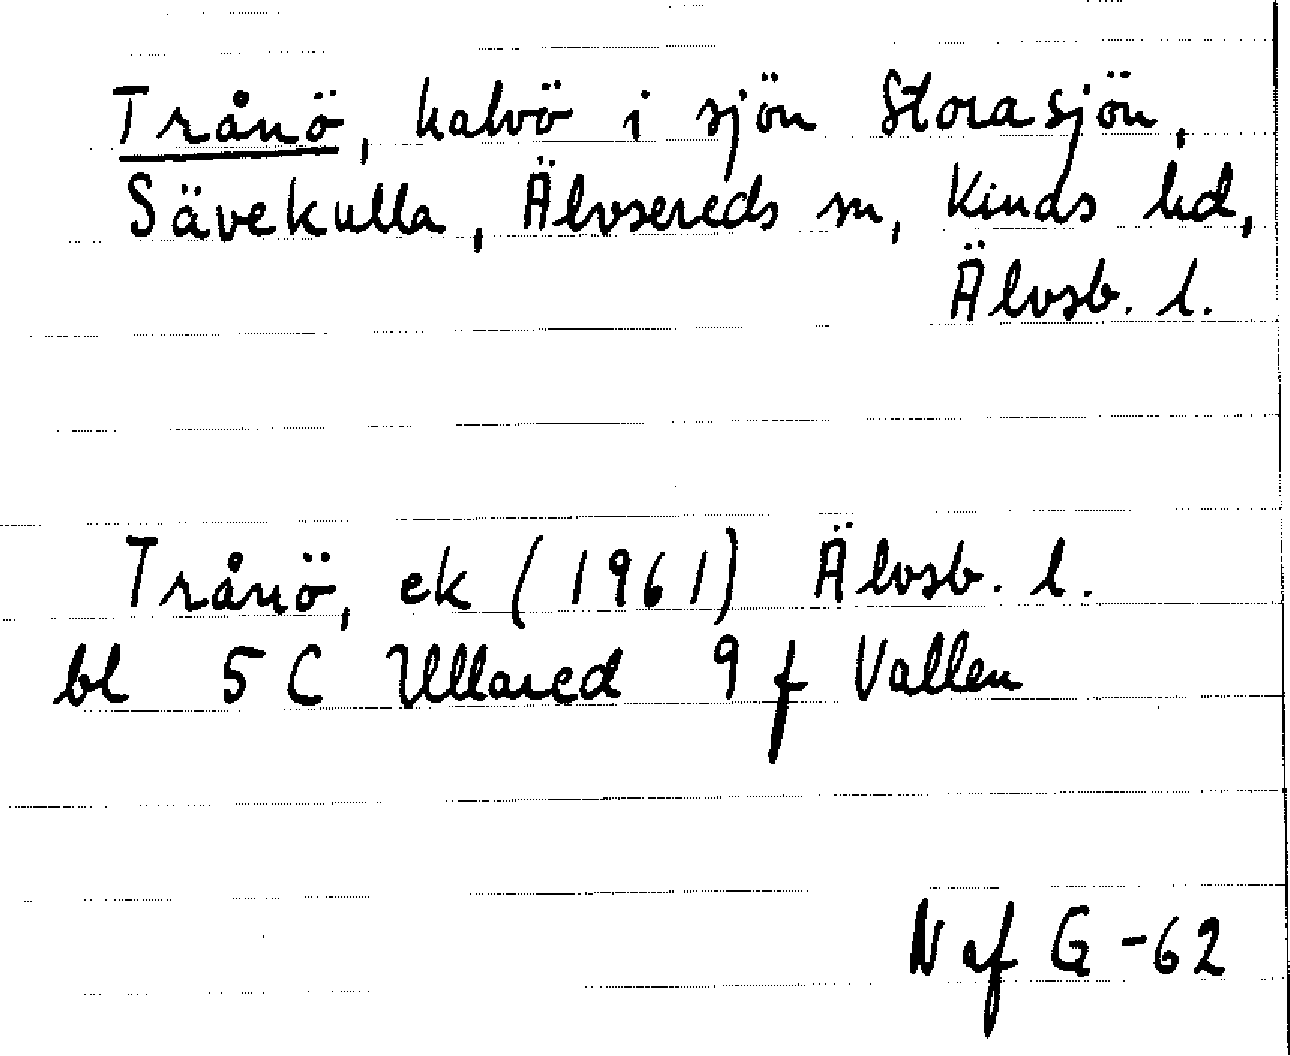 Trånö, halvö i sjön Storasjön,
Sävekulla, Älvsereds sn, Kinds hd,
Älvsb. l.
Trånö, ek (1961) Älvsb. l.
bl 5 C Ullared 9 f Vallen
N af G -62